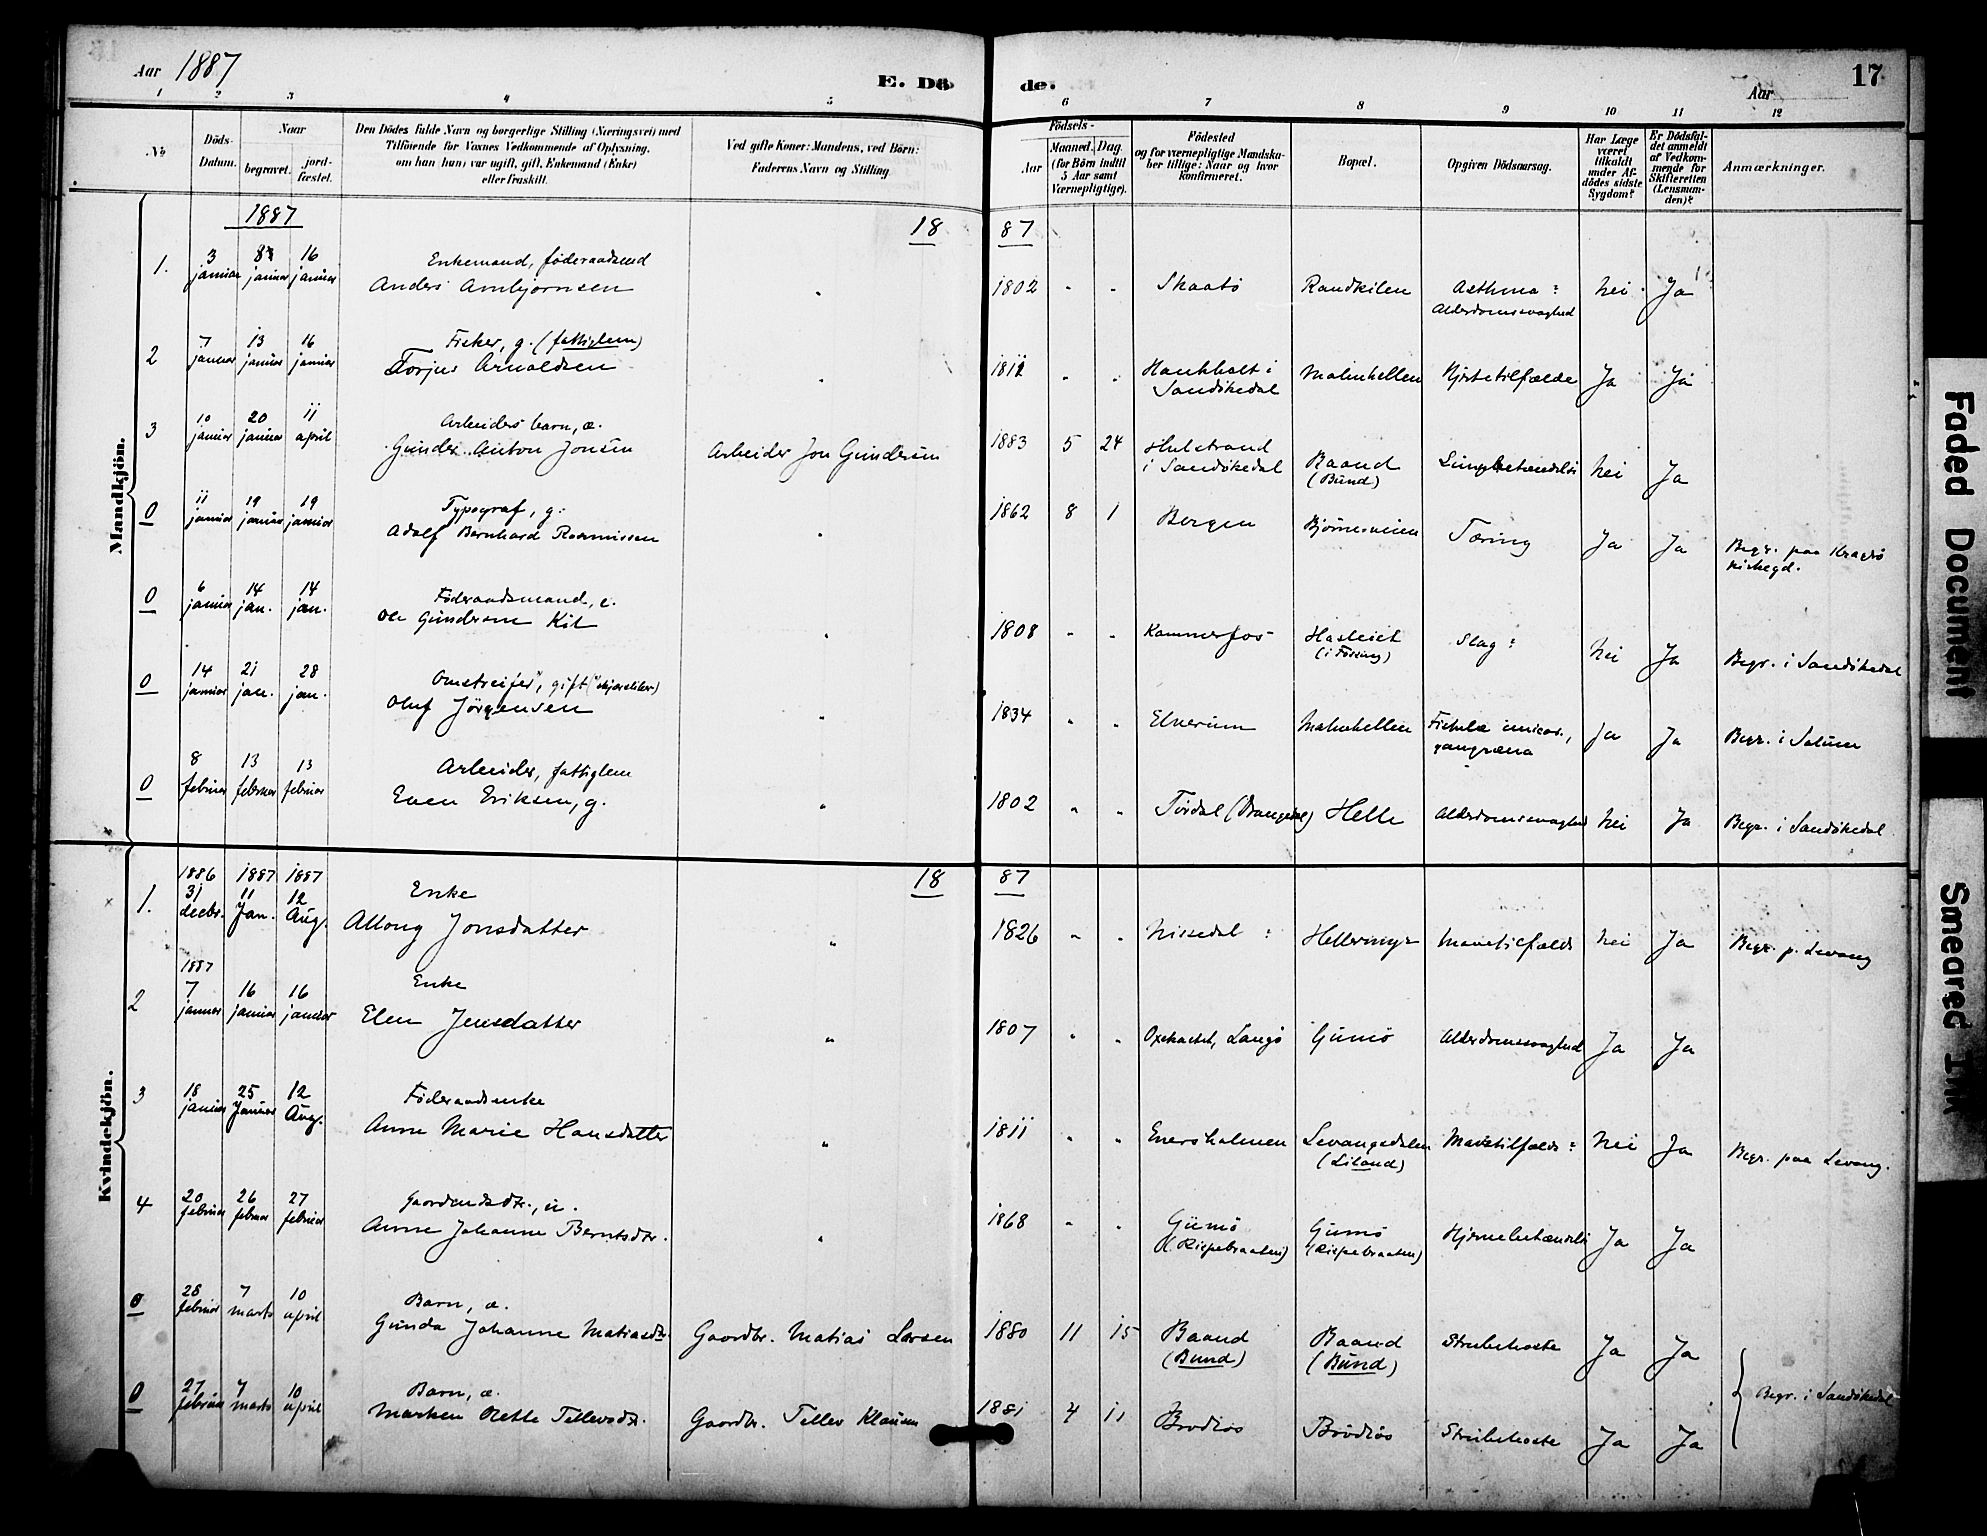 Aar 1887
E. Dö
de.
Aar
17
1 2 3 4 5 6 7 8 9 10 11 12
No.
Döds-Datum.
Naar
begravet.
jordfæstet.
Den Dödes fulde Navn og borgerlige Stilling (Næringsvei) med
Tilföiende for Voxnes Vedkommende af Oplysning,
om han (hun) var ugift, gift, Enkemand (Enke)
eller fraskilt.
Ved gifte Koner: Mandens, ved Börn:
Faderens Navn og Stilling.
Födsels-
Aar
Maaned. Dag.
(for Börn indtil
5 Aar samt
Værnepligtige).
Födested
og for værnepligtige Mandska-
ber tillige: Naar og hvor
konfirmeret.
Bopæl.
Opgiven Dödsaarsag.
Har Læge
været
tilkaldt
under Af-
dödes sidste
Sygdom?
Er Dödsfal-
det anmeldt
af Vedkom-
mende for
Skifteretten
(Lensman-
den)?
Anmærkninger.
Mandkjön.
1887
18 87
1. 3 januar 8 januar 16 januar Enkemand, föderaadsmd
Anders Arnbjørnsen " 1802 " " Skaatö Randkilen Asthma? Alderdomssvaghed Nei Ja
2 7 januar 13 januar 16 januar Fisker, g. (fattiglem)
Torjus Arnoldsen " 1812 " " Haukholt i Sandökedal Malmhellen Hjertetilfælde Ja Ja
3 10 januar 20 januar 11 april Arbeiders barn, æ.
Gunder Anton Jonsen Arbeider Jon Gundersen 1883 5 24 Hulstrand i Sandökedal Baand (Bund) Lungebetændelse Nei Ja
0 11 januar 19 januar 19 januar Typograf, g.
Adolf Bernhard Rasmussen " 1862 8 1 Bergen Bjørnsveien Tæring Ja Ja Begr. paa Kragerö kirkegd.
0 6 januar 14 jan. 14 jan. Föderaadsmand, e.
Ole Gundersen Kil " 1808 " " Kammerfos Hasleiet (i Fossing) Slag? Nei Ja Begr. i Sandökedal
0 14 januar 21 jan. 28 jan. "Omstreifer", gift
Oluf Jörgensen " 1834 " " Elverum Malmhellen gangræna Ja Ja Begr. i Solum
0 8 februar 13 februar 13 februar Arbeider, fattiglem
Even Eriksen, g. " 1802 " " Tördal (Drangedal) Helle Alderdomssvaghed Nei Ja Begr. i Sandökedal
Kvindekjön.
18 87
1. 1886 31 decbr. 1887 11 Jan. 1887 12 Aug. Enke
Aslaug Jonsdatter " 1826 " " Nissedal Hellermyr Mavetilfælde Nei Ja Begr. p. Levang
2 1887 7 januar 16 januar 16 januar Enke
Elen Jensdatter " 1807 " " Oxekastet, Langö Gumö Alderdomssvaghed Ja Ja
3 18 januar 25 Januar 12 Aug. Föderaadsenke
Anne Marie Hansdatter " 1811 " " Enersholmen Levangsdalen (Liland) Mavetilfælde? Nei Ja Begr. paa Levang.
4 20 februar 26 februar 27 februar Gaardmdsdtr., u.
Anne Johanne Berntsdtr. " 1868 " " Gumö (Rispebraaten) Gumö (Rispebraaten) Hjernebetændelse Ja Ja
0 28 februar 7 marts 10 april Barn, æ.
Gunda Johanne Matiasdtr. Gaardbr. Matias Larsen 1880 11 15 Baand (Bund) Baand (Bund) Strubehoste Ja Ja
0 27 februar 7 marts 10 april Barn, æ.
Marken Oette Tellevsdtr. Gaardbr. Tellev Klausen 1881 4 11 Brödlös Brödlös Strubehoste Ja Ja Begr. i Sandökedal
Faded Document
Smeared Ink